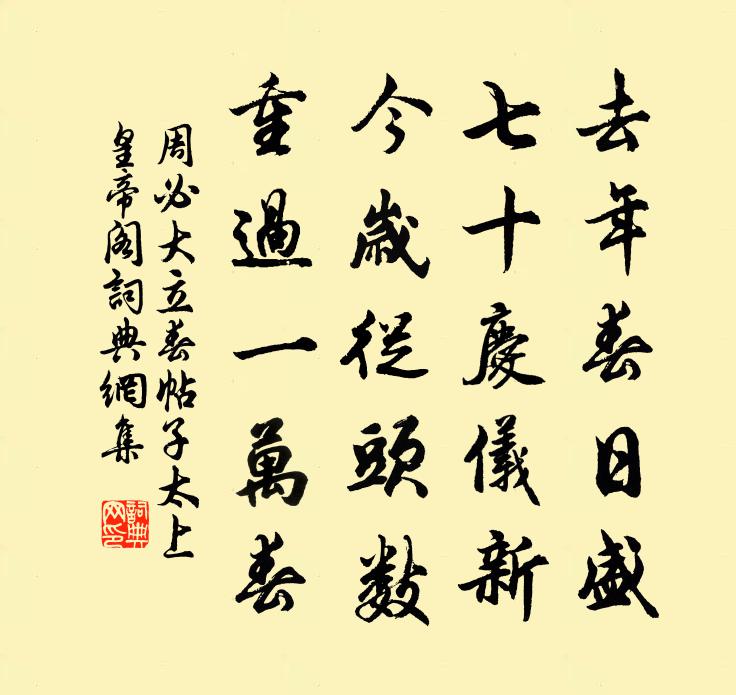 去年春日盛
七十慶儀新
今歲從頭數
重過一萬春
周必大立春帖子太上
皇帝閣詞典網集
詞典
网印